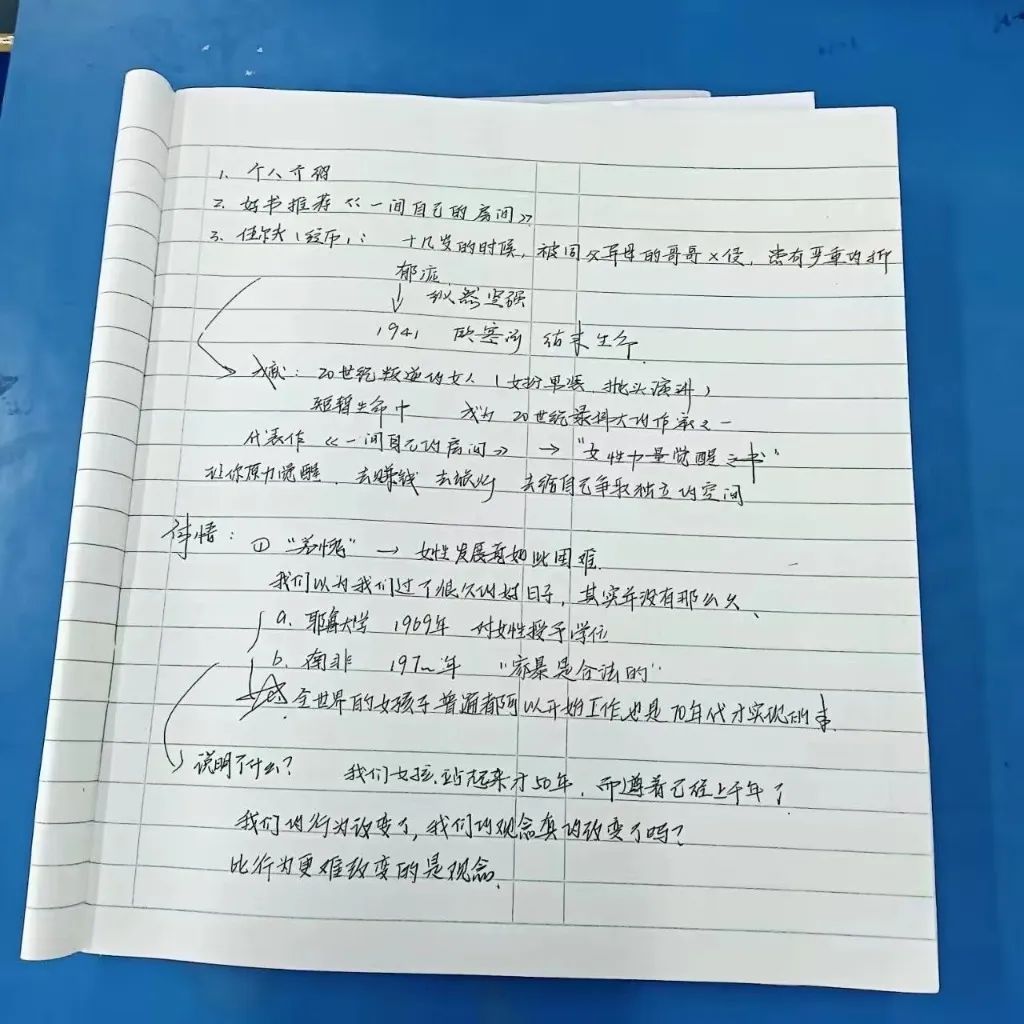 1、个人介绍
2、好书推荐《一间自己的房间》
3、伍尔夫（经历）：十几岁的时候，被同父异母的哥哥×侵，患有严重的抑
郁症
↓
1941 欧塞河 结束生命
→ 成就：20世纪叛逆的女人（女扮男装、抛头演讲）
短暂生命中 成为20世纪最伟大的作家之一
代表作《一间自己的房间》→“女性力量觉醒之书”
让你原力觉醒、去赚钱 去给自己争取独立的空间
感悟：① → 女性发展真如此困难
我们以为我们过了很久的好日子，其实并没有那么久、
a. 耶鲁大学 1969年 对女性授予学位
b. 南非 197 年 “家暴是合法的”
全世界的女孩子普遍都可以开始工作也是70年代才实现的事
说明了什么？ 我们女孩站起来才50年，而蹲着已经上千年了
我们的行为改变了，我们的观念真的改变了吗？
比行为更难改变的是观念、